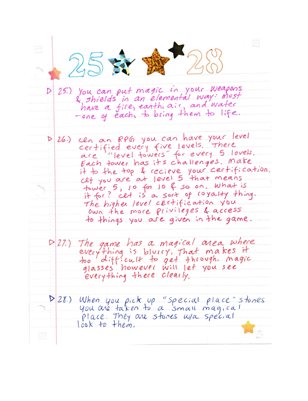 25 28
25.) You can put magic in your weapons
& shields in an elemental way. Must
have a fire, earth, air, and water
-one of each, to bring them to life.
26.) In an RPG you can have your level
certified every five levels. There
are "level towers" for every 5 levels.
Each tower has its challenges. Make
it to the top & recieve your certification.
If you are at level 5 that means
tower 5, 10 for 10 & so on. What is
it for? It is a sort of loyalty thing.
The higher level certification you
own the more privileges & access
to things you are given in the game.
27.) The game has a magical area where
everything is blurry. That makes it
too difficult to get through. Magic
glasses however will let you see
everything there clearly.
28.) When you pick up "special place" stones
you are taken to a small magical
place. They are stones w/a special
look to them.